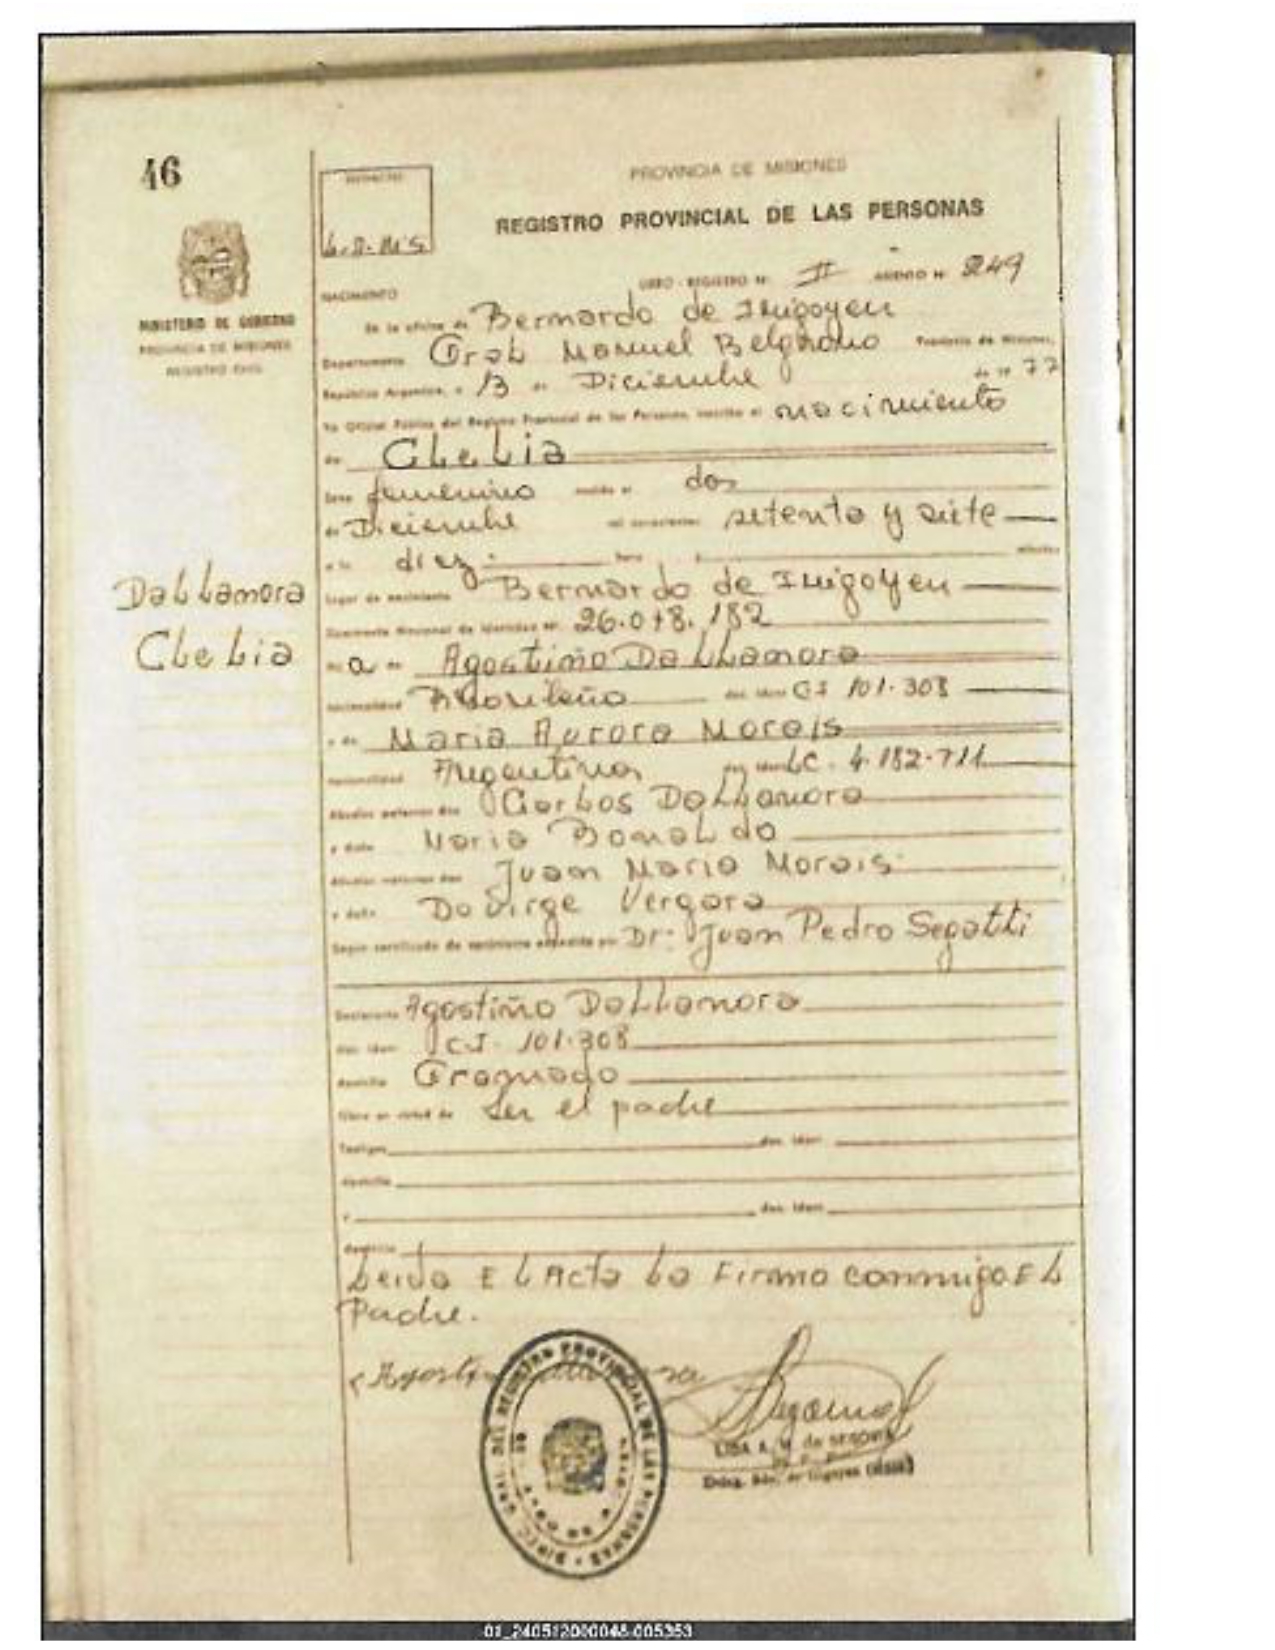 46
PROVINCIA DE MISIONES
REGISTRO PROVINCIAL DE LAS PERSONAS
MINISTERIO DE GOBIERNO
PROVINCIA DE MISIONES
REGISTRO CIVIL
NACIMIENTO
LIBRO - REGISTRO Nº II ASIENTO Nº 249
En la oficina de Bernardo de Irigoyen
Departamento Gral Manuel Belgrano Provincia de Misiones,
República Argentina, a 13 de Diciembre de 19 77
Yo Oficial Público del Registro Provincial de las Personas, inscribo el nacimiento
de CLeLia
Sexo femenino nacida el dos
de Diciembre mil novecientos setenta y siete
a la diez hora y minutos
Lugar de nacimiento Bernardo de Irigoyen
Documento Nacional de Identidad Nº 26.078.182
DaLLamora
CLeLia
a de Agostiño DaLLamora
nacionalidad Brasileño doc. iden. CI 101.308
y de Maria Aurora Morais
nacionalidad Argentina doc. iden. LC. 4.182.711
Abuelos paternos don Carlos DaLLamora
y doña Maria Bonaldo
Abuelos maternos don Juan Maria Morais
y doña Dovirge Vergara
Según certificado de nacimiento expedido por Dr: Juan Pedro Segatti
Declarante Agostiño DaLLamora
doc. iden. C.I. 101.308
domicilio Gramado
Obra en virtud de Ser el padre
Testigos doc. iden.
domicilio
y doc. iden.
domicilio
Leida EL Acta La Firma conmigo EL
Padre.
DIREC. GRAL. DEL REGISTRO PROVINCIAL DE LAS PERSONAS
LIDIA A. M. de SEGOVIA
Deleg. Bdo. de Irigoyen (Mnes)
01_240512000048-005353